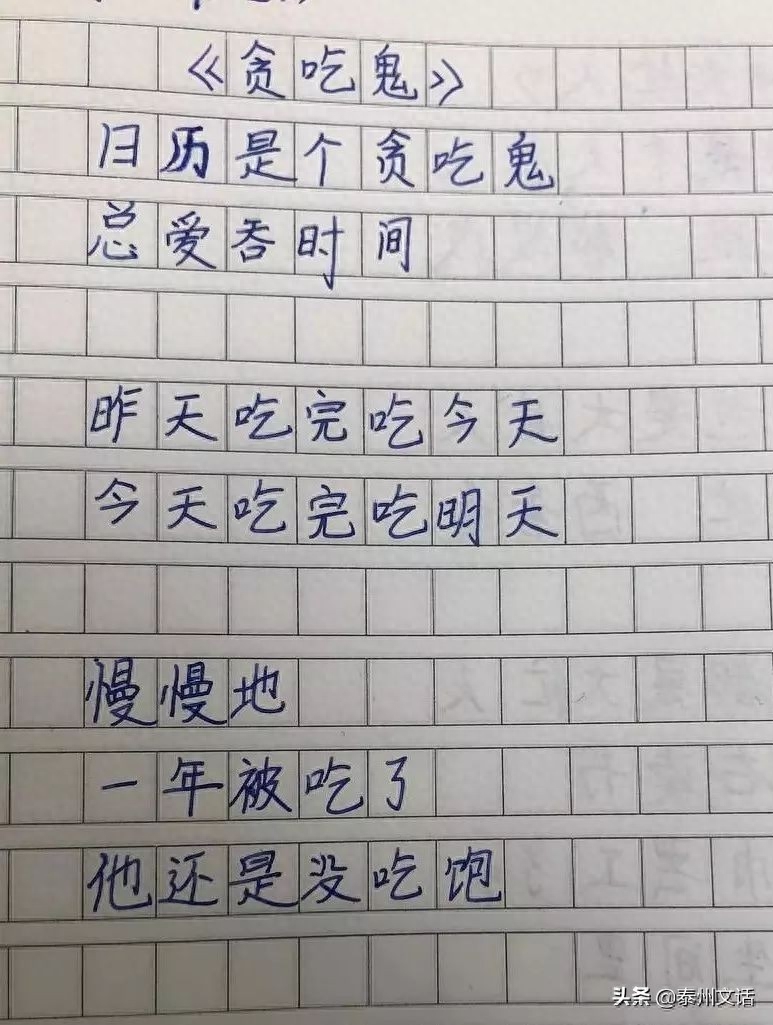 《贪吃鬼》
日历是个贪吃鬼
总爱吞时间
昨天吃完吃今天
今天吃完吃明天
慢慢地
一年被吃了
他还是没吃饱
头条 @泰州文话